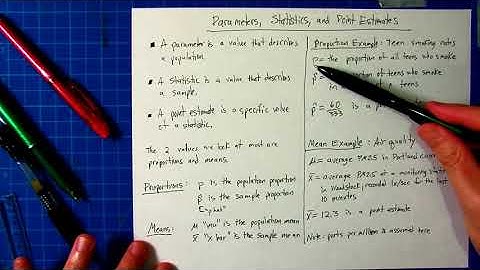 Parameters, Statistics, and Point Estimates
A parameter is a value that describes
a population.
A statistic is a value that describes
a sample.
A point estimate is a specific value
of a statistic.
The 2 values we look at most are
proportions and means.
Proportions: p is the population proportion
p̂ is the sample proportion
"p-hat"
Means: μ "mu" is the population mean
x̄ "x bar" is the sample mean
Proportion Example: Teen smoking rates
p = the proportion of all teens who smoke
proportion of teens who smoke
in teens
p̂ = 60/ is a p
Mean Example: Air quality
μ = average PM2.5 in Portland
x̄ = average PM2.5 at a monitoring station
in Woodstock, recorded 1x/sec for the last
10 minutes
x̄ = 12.3 is a point estimate
Note: parts per million is assumed here